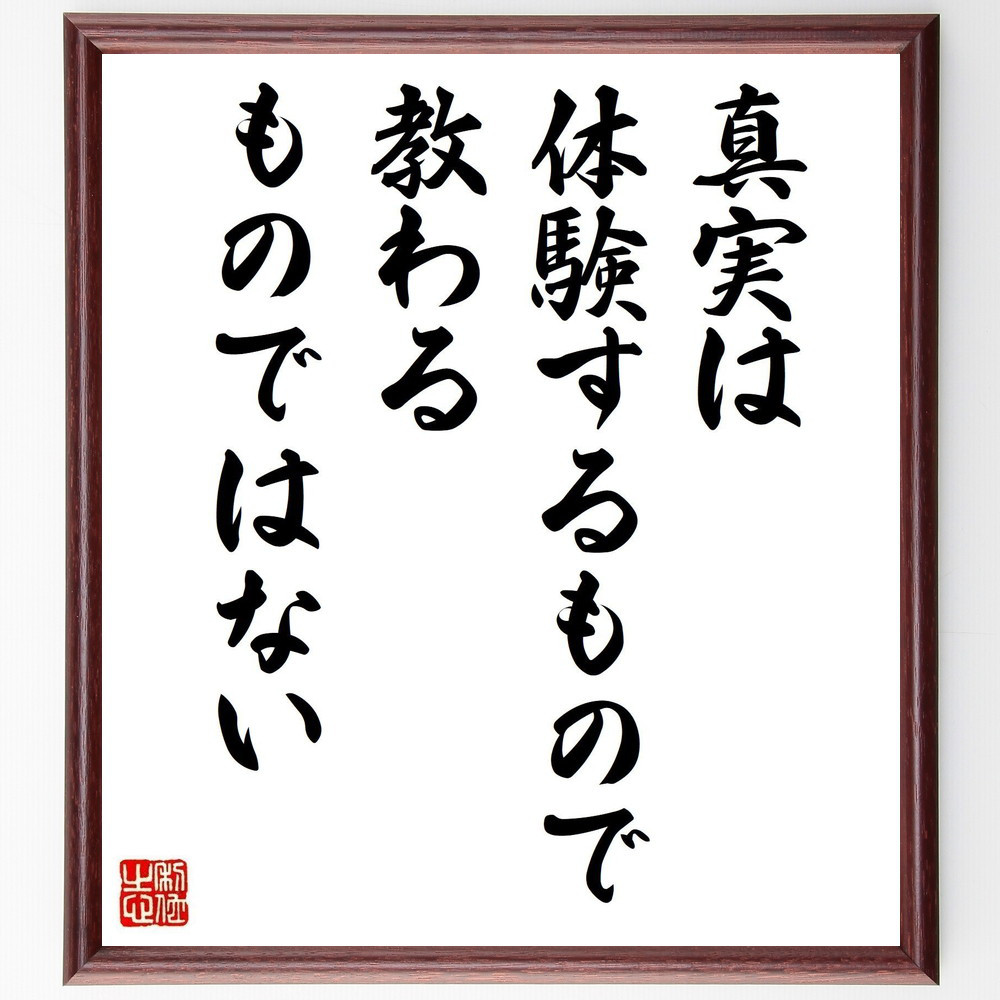 真実は
体験するもので
教わる
ものではない